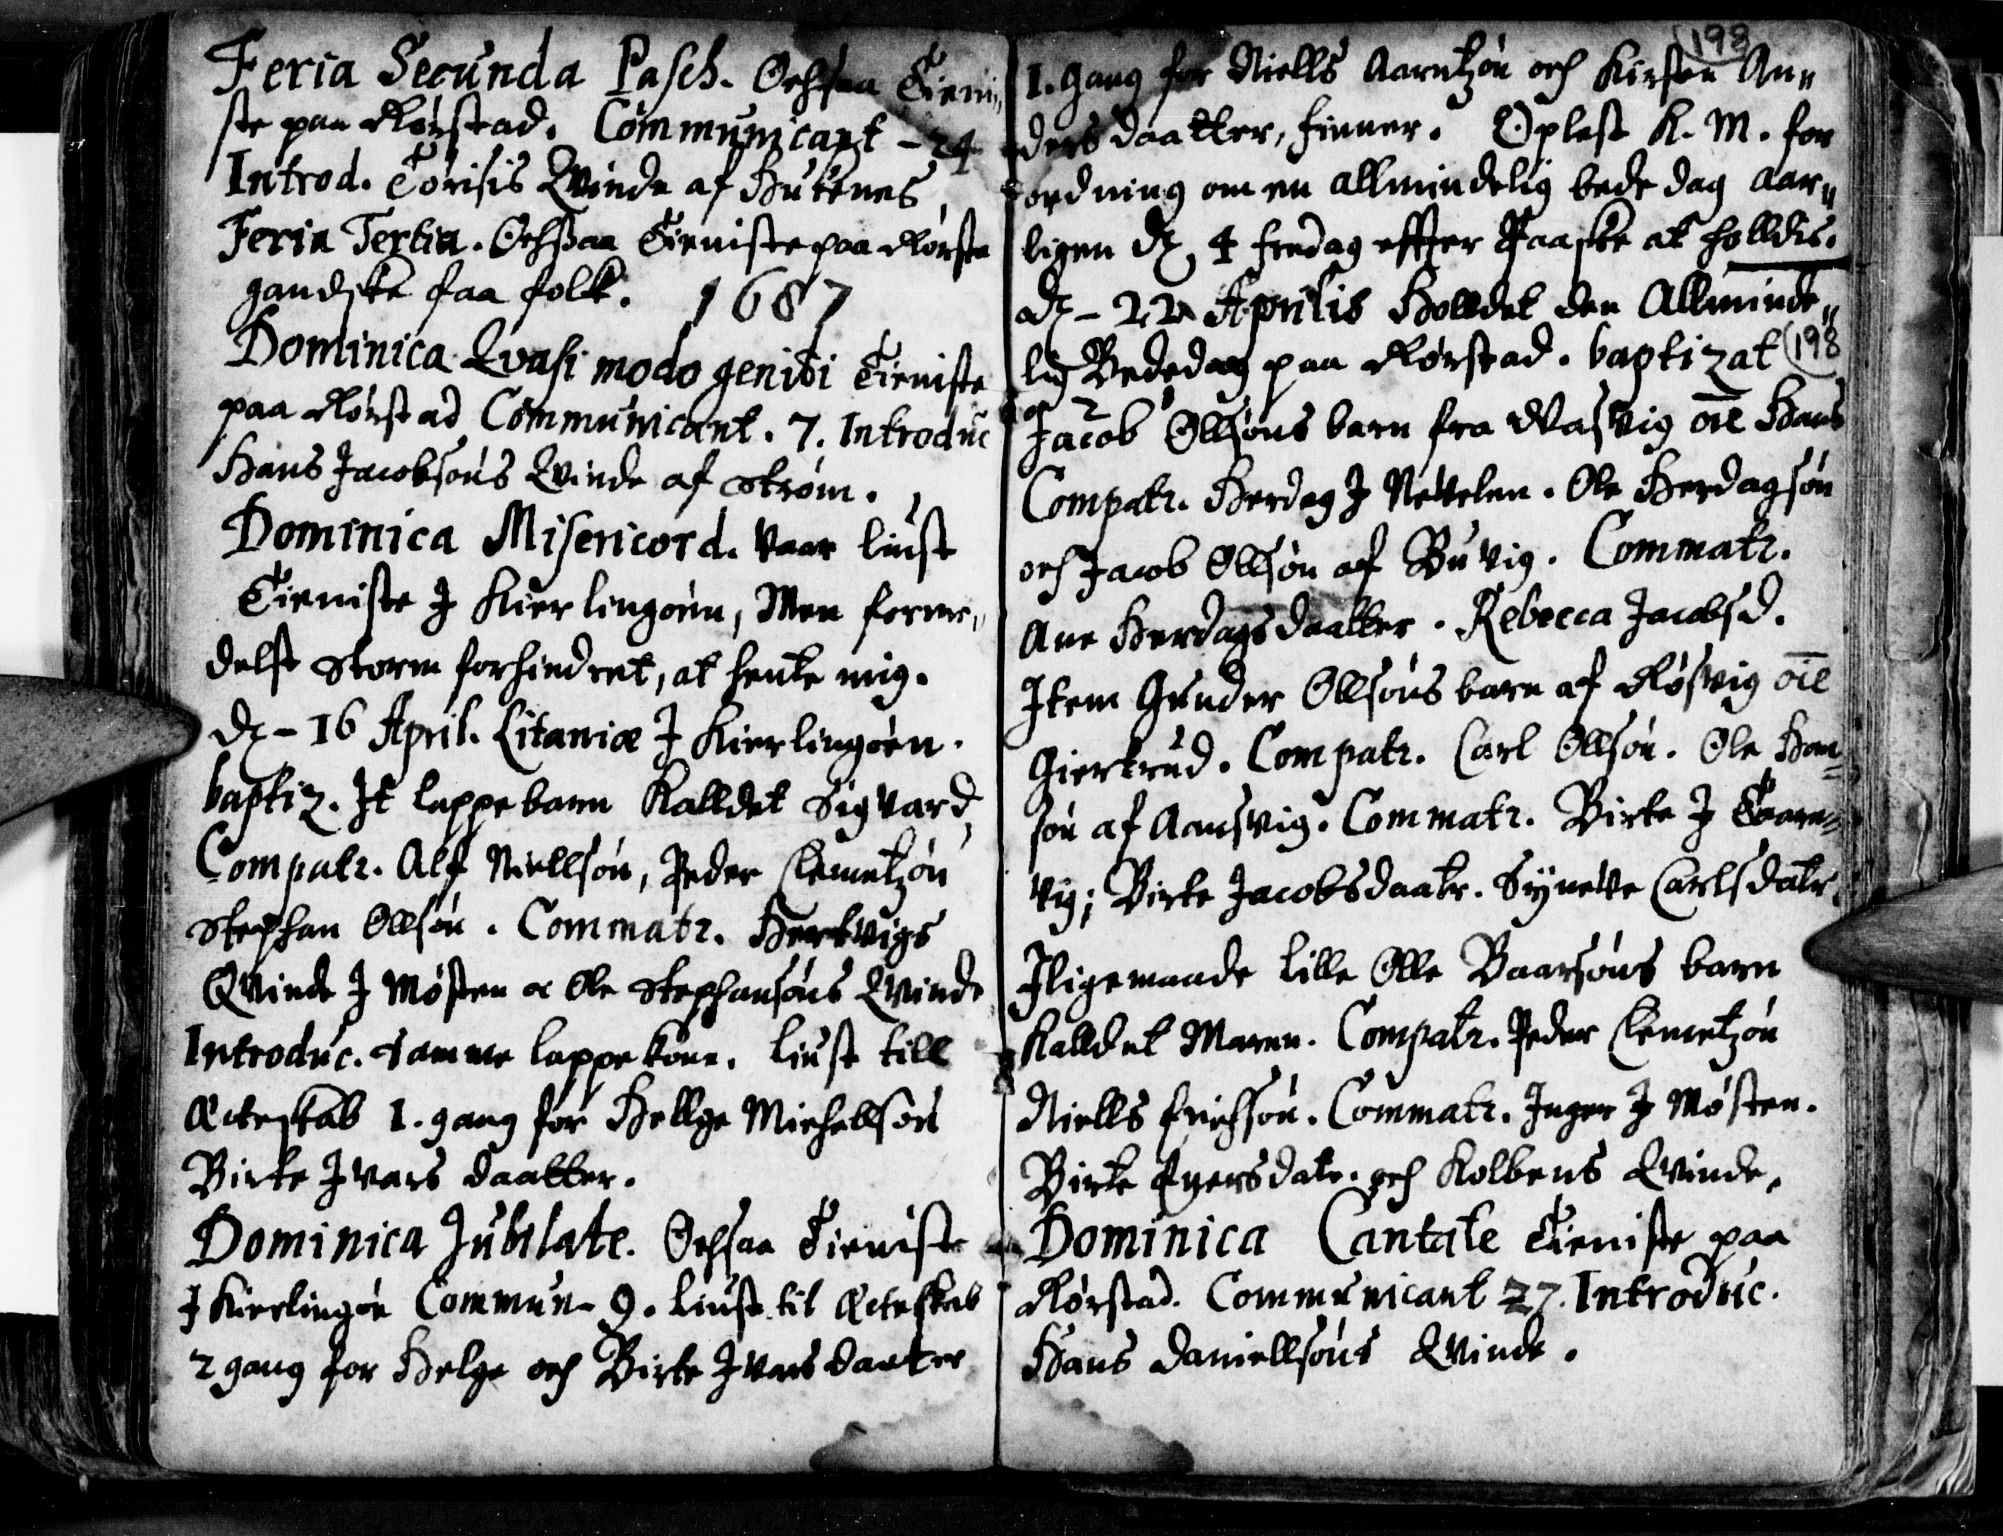 Feria Secunda Pasch. Ochsaa Tieni„
ste paa Rørstad. Communicant - 24
Introd. Torisis Qvinde af Husbenes
Feria Tertia. Ochsaa Tieniste paa Rørsta
gandske faa folk. 1687
Dominica Qvasi modo geniti Tieniste
paa Rørstad Communicant. 7. Introduc
Hans Jacobsøns Qvinde af Strøm.
Dominica Misericord. vaar liust
Tieniste J Kierlingøen, Men forme„
delst storm forhindret, at hente mig.
D. - 16 April. Litaniæ J Kierlingøen.
baptiz. It lappebarn Kalldet Sigvard
Compatr. Alf Niellsøn, Peder Clemetzøn
Stephan Ollsøn. Commatr. Hertvigs
Qvinde J Møsten oc Ole Stephansøns Qvinde
Introduc. samme lappe kone. Liust till
Ecteskab 1. gang for Hellge Michellsøn
Birte Jvars daatter.
Dominica Jubilate. Ochsaa Tieniste
J Kierlingøe Commun - 9. Liust til Ecteskab
2 gang for Helge och Birte Jvars daater
198
1. gang for Niells Aarntzøn och Kirsten An„
ders daatter, finner. Oplest K. M. for
ordning om en allmindelig bede dag aar„
ligen d. 4 fredag effter Paaske at holldis.
D. - 22 Aprilis Holldet den Allminde„
lig Bededag paa Rørstad. baptizat 198
Jacob Ollsøns barn fra Vasvig oie Hans
Compatr. Herdag J Nevelen. Ole Herdagsøn
och Jacob Ollsøn af Buvig. Commatr.
Ane Herdags daatter. Rebecca Jacobsd.
Item Gunder Ollsøns barn af Røsvig oie
Giertrud. Compatr. Carl Ollsøn. Ole Han„
søn af Aansvig. Commatr. Birte J Taare„
vig; Birte Jacobsdaatr. Synneve Carlsdatr.
Jligemaade lille Olle Baarsøns barn
Kalldet Maren. Compatr. Peder Clemetzøn
Niells Erichsøn. Commatr. Inger J Møsten.
Birte Eversdatr. och Kolbens Qvinde.
Dominica Cantate Tieniste paa
Rørstad. Communicant 27. Introduc.
Hans Daniellsøns Qvinde.